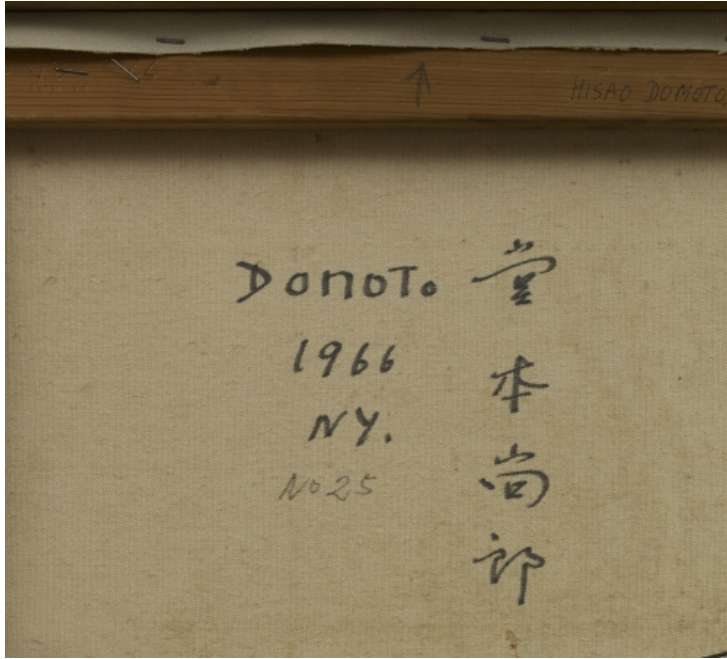 HISAO DOMOTO
DOMOTO
1966
NY.
No 25
堂本尚郎